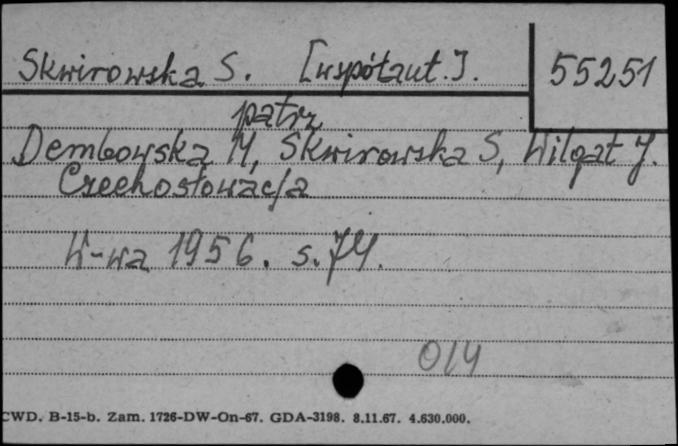 Skwirowska S. [współaut.]. 55251
patrz
Dembowska M, Skwirowska S, Wilgat J.
Czechosłowacja
W-wa 1956. s. 74.
014
CWD. B-15-b. Zam. 1726-DW-On-67. GDA-3198. 8.11.67. 4.630.000.